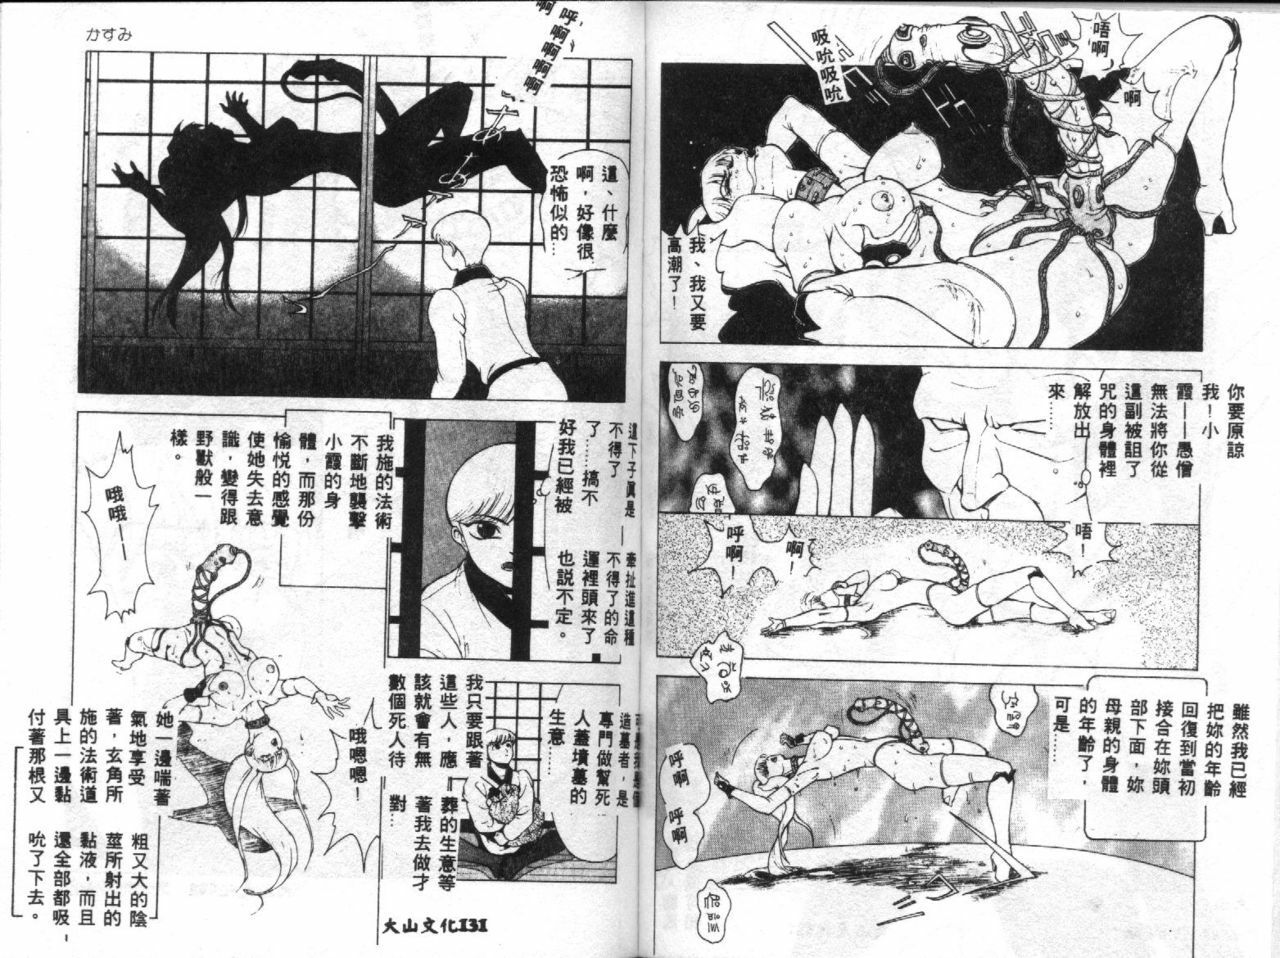 唔啊！
啊
吸吮吸吮
我、我又要
高潮了！
你要原諒
我！小
霞——愚僧
無法將你從
這副被詛了
咒的身體裡
解放出
來……
唔！
啊！
呼啊！
雖然我已經
把妳的年齡
回復到當初
接合在妳頭
部下面，妳
母親的身體
的年齡了，
可是……
呼啊
呼啊
かすみ
呼啊啊啊啊
這、什麼
啊，好像很
恐怖似的…
這下子真是
不得了
了……搞不
好我已經被
牽扯進這種
不得了的命
運裡頭來了
也說不定。
我施的法術
不斷地襲擊
小霞的身
體，而那份
愉悅的感覺
使她失去意
識，變得跟
野獸般一
樣。
哦哦——
造墓者，是
專門做幫死
人蓋墳墓的
生意…
我只要跟著
這些人，應
該就會有無
數個死人待
葬的生意等
著我去做才
對…
哦嗯嗯！
她一邊喘著
氣地享受
著，玄角所
施的法術道
具上一邊黏
付著那根又
粗又大的陰
莖所射出的
黏液，而且
還全部都吸
吮了下去。
大山文化131